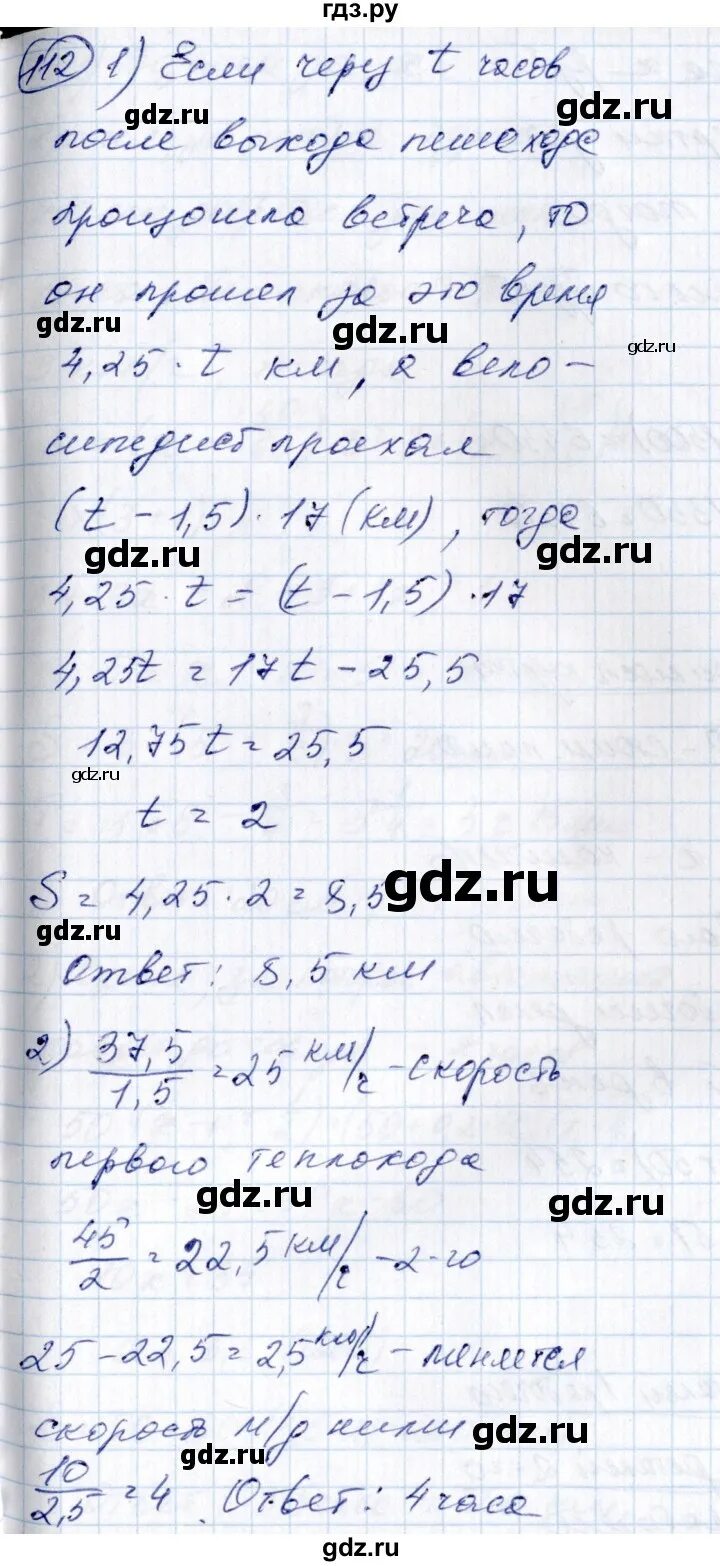 гдз.ру
112 1) Если через t часов
gdz.ru gdz.ru
после выхода пешехода
произошла встреча, то
он прошел за это время
gdz.ru gdz.ru gdz.ru
4,25 · t км, а вело-
сипедист проехал
(t - 1,5) · 17 (км), тогда
gdz.ru gdz.ru
4,25 · t = (t - 1,5) · 17
4,25t = 17t - 25,5
12,75t = 25,5
gdz.ru
t = 2
gdz.ru
S = 4,25 · 2 = 8,5
gdz.ru
Ответ: 8,5 км
2) 37,5/1,5 = 25 км/ч - скорость
первого теплохода
gdz.ru gdz.ru
45/2 = 22,5 км/ч - 2-го
25 - 22,5 = 2,5 км/ч - меняется
скорость м/д ними
gdz.ru gdz.ru
10/2,5 = 4. Ответ: 4 часа
gdz.ru